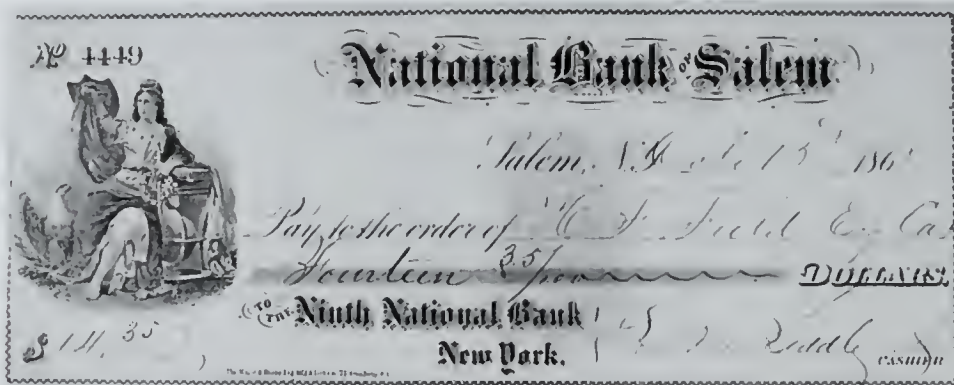 No 4449
National Bank of Salem
Salem, N.Y. 13 186
Pay to the order of F. Field Cas
Fourteen 35/100 DOLLARS,
TO THE Ninth National Bank
New York.
$ 14.35
CASHIER